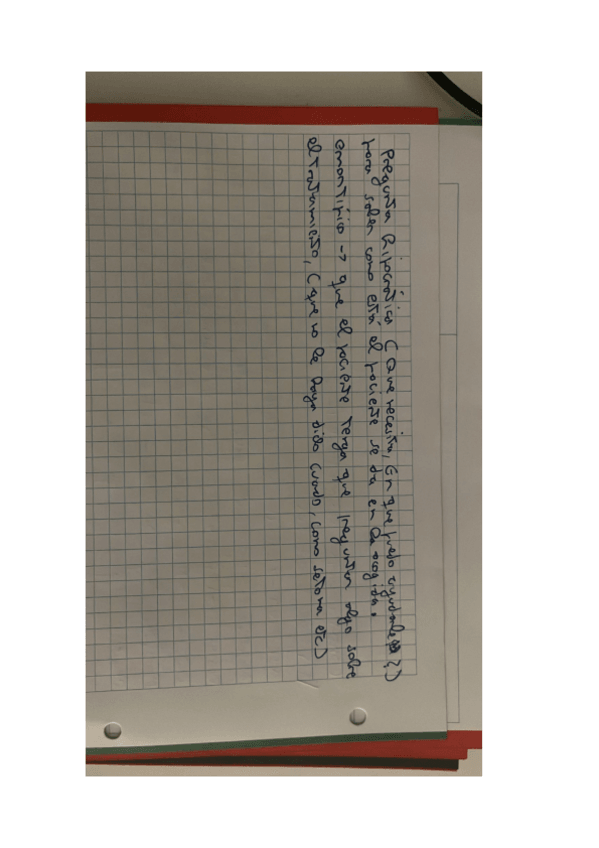 Pregunta Hipocrática (Que necesita, En que puedo ayudarle?)
para saber como está el paciente se da en la acogida.
→ que el paciente tenga que preguntar algo sobre
el tratamiento, (que no le haya dicho cuando, como se toma etc)